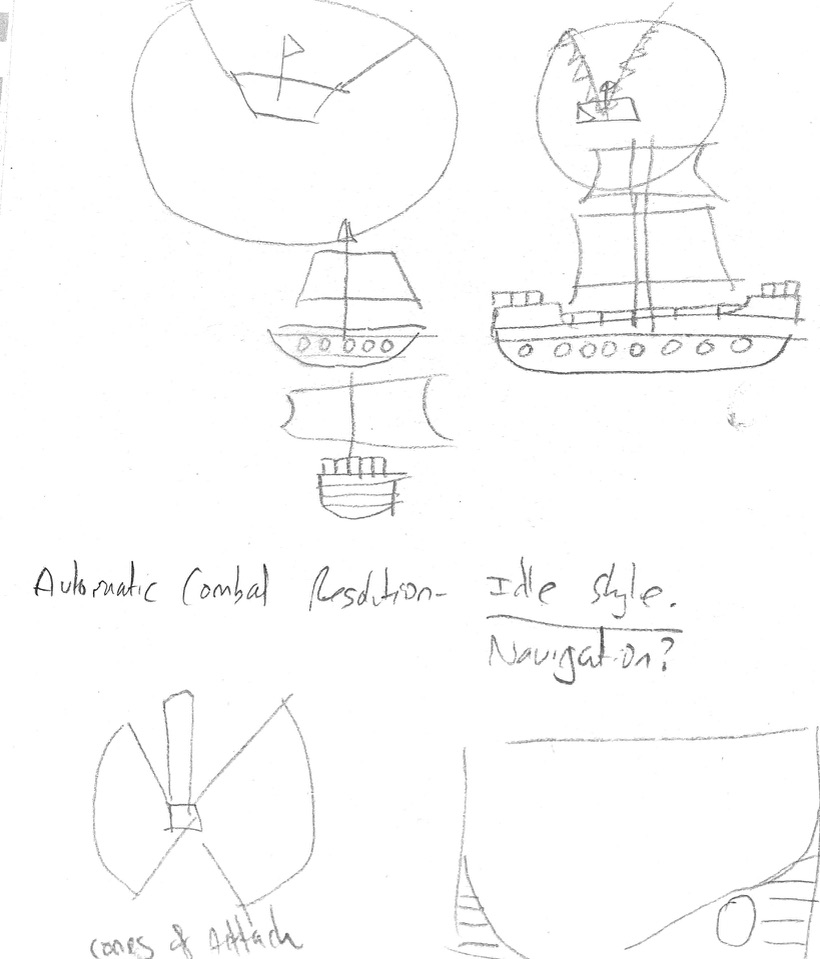 Automatic Combat Resolution- Idle style.
Navigation?
cones of Attack